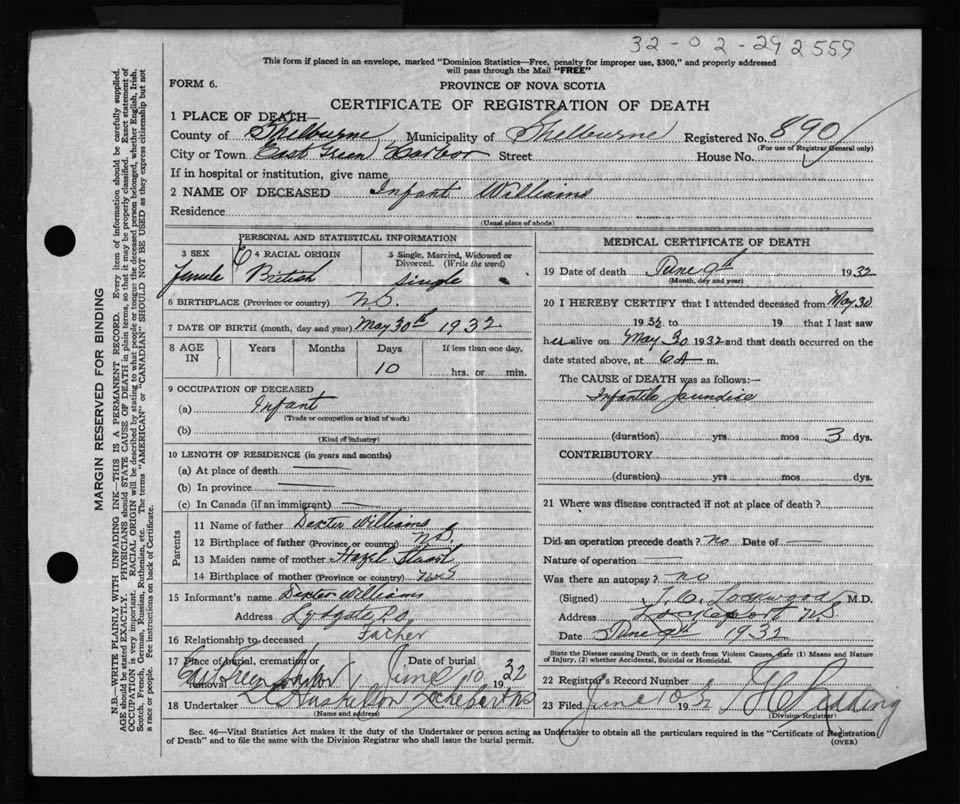 32-02-292559
This form if placed in an envelope, marked "Dominion Statistics—Free, penalty for improper use, $300," and properly addressed
will pass through the Mail "FREE"
FORM 6.
PROVINCE OF NOVA SCOTIA
CERTIFICATE OF REGISTRATION OF DEATH
1 PLACE OF DEATH—
County of Shelburne Municipality of Shelburne Registered No. 890
(For use of Registrar General only)
City or Town East Green Harbor Street House No.
If in hospital or institution, give name
2 NAME OF DECEASED Infant Williams
Residence
(Usual place of abode)
PERSONAL AND STATISTICAL INFORMATION
3 SEX 4 RACIAL ORIGIN 5 Single, Married, Widowed or
Divorced. (Write the word)
female British single
6 BIRTHPLACE (Province or country) N.S.
7 DATE OF BIRTH (month, day and year) May 30th 1932
8 AGE IN Years Months Days If less than one day,
10 hrs. or min.
9 OCCUPATION OF DECEASED
(a) Infant
(Trade or occupation or kind of work)
(b)
(Kind of industry)
10 LENGTH OF RESIDENCE (in years and months)
(a) At place of death —
(b) In province —
(c) In Canada (if an immigrant) —
Parents
11 Name of father Dexter Williams
12 Birthplace of father (Province or country) N.S.
13 Maiden name of mother Hazel
14 Birthplace of mother (Province or country)
15 Informant's name Dexter Williams
Address P.O.
16 Relationship to deceased Father
17 Place of burial, cremation or removal Date of burial
East Green Harbor June 10 1932
18 Undertaker
(Name and address)
MEDICAL CERTIFICATE OF DEATH
19 Date of death June 9th 1932
(Month, day and year)
20 I HEREBY CERTIFY that I attended deceased from May 30
1932 to 19 that I last saw
her alive on May 30 1932 and that death occurred on the
date stated above, at 6 A m.
The CAUSE of DEATH was as follows:—
Infantile Jaundice
(duration) yrs mos 3 dys.
CONTRIBUTORY
(duration) yrs mos dys.
21 Where was disease contracted if not at place of death?
Did an operation precede death? no Date of —
Nature of operation —
Was there an autopsy? no
(Signed) Lockwood M.D.
Address Lockeport N.S.
Date June 9th 1932
State the Disease causing Death, or in death from Violent Causes, state (1) Means and Nature
of Injury, (2) whether Accidental, Suicidal or Homicidal.
22 Registrar's Record Number
23 Filed June 10 1932
(Division Registrar)
Sec. 46—Vital Statistics Act makes it the duty of the Undertaker or person acting as Undertaker to obtain all the particulars required in the "Certificate of Registration
of Death" and to file the same with the Division Registrar who shall issue the burial permit.
(OVER)
MARGIN RESERVED FOR BINDING
N.B.—WRITE PLAINLY WITH UNFADING INK—THIS IS A PERMANENT RECORD. Every item of information should be carefully supplied.
AGE should be stated EXACTLY. PHYSICIANS should STATE CAUSE OF DEATH in plain terms, so that it may be properly classified. Exact statement of
OCCUPATION is very important. RACIAL ORIGIN will be described by stating to what people or tongue the deceased person belonged, whether English, Irish,
Scotch, French, German, Russian, Ruthenian, etc. The terms "AMERICAN" or "CANADIAN" SHOULD NOT BE USED as they express citizenship but not
a race or people. Fee instructions on back of Certificate.